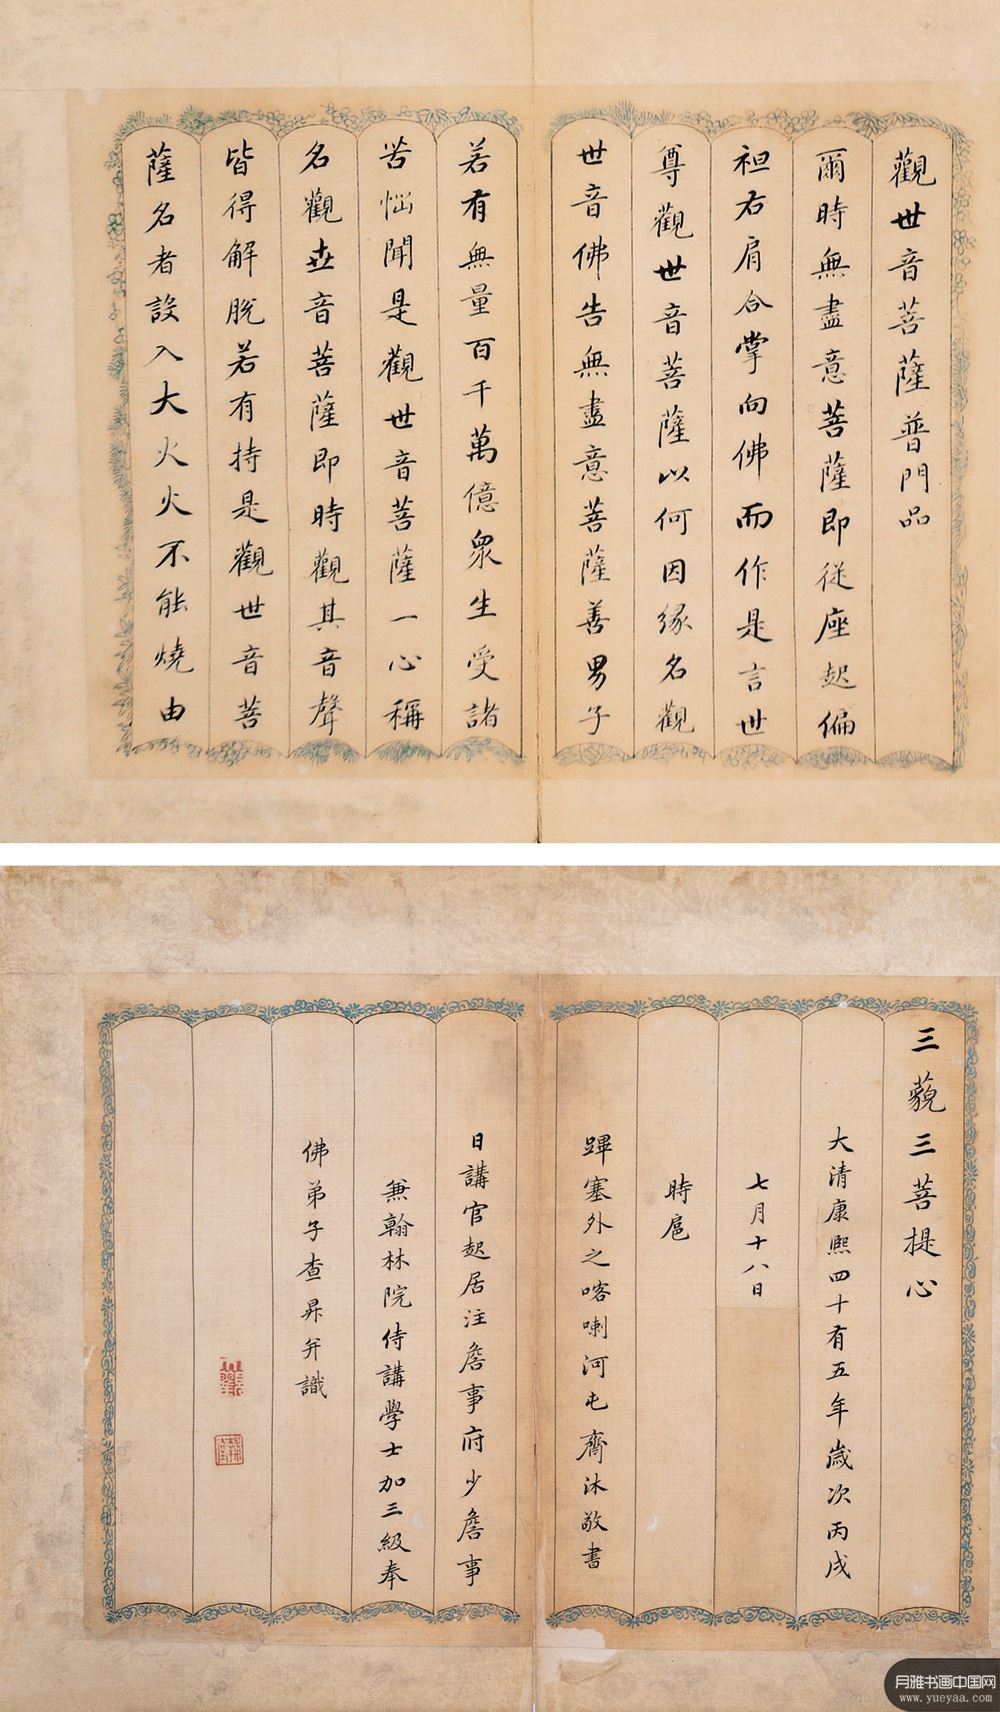 觀世音菩薩普門品
爾時無盡意菩薩即從座起偏
袒右肩合掌向佛而作是言世
尊觀世音菩薩以何因緣名觀
世音佛告無盡意菩薩善男子
若有無量百千萬億眾生受諸
苦惱聞是觀世音菩薩一心稱
名觀世音菩薩即時觀其音聲
皆得解脫若有持是觀世音菩
薩名者設入大火火不能燒由
三藐三菩提心
大清康熙四十有五年歲次丙戌
七月十八日
時扈
蹕塞外之喀喇河屯齋沐敬書
日講官起居注詹事府少詹事
兼翰林院侍講學士加三級奉
佛弟子查昇弁識
月雅书画中国网
www.yueyaa.com